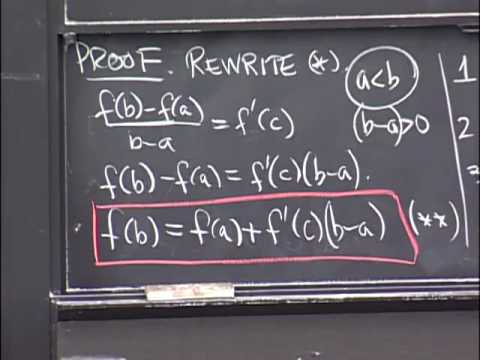 PROOF. REWRITE (*). a<b
(f(b)-f(a))/(b-a) = f'(c) (b-a)>0
f(b)-f(a) = f'(c)(b-a).
f(b) = f(a)+f'(c)(b-a) (**)
1
2